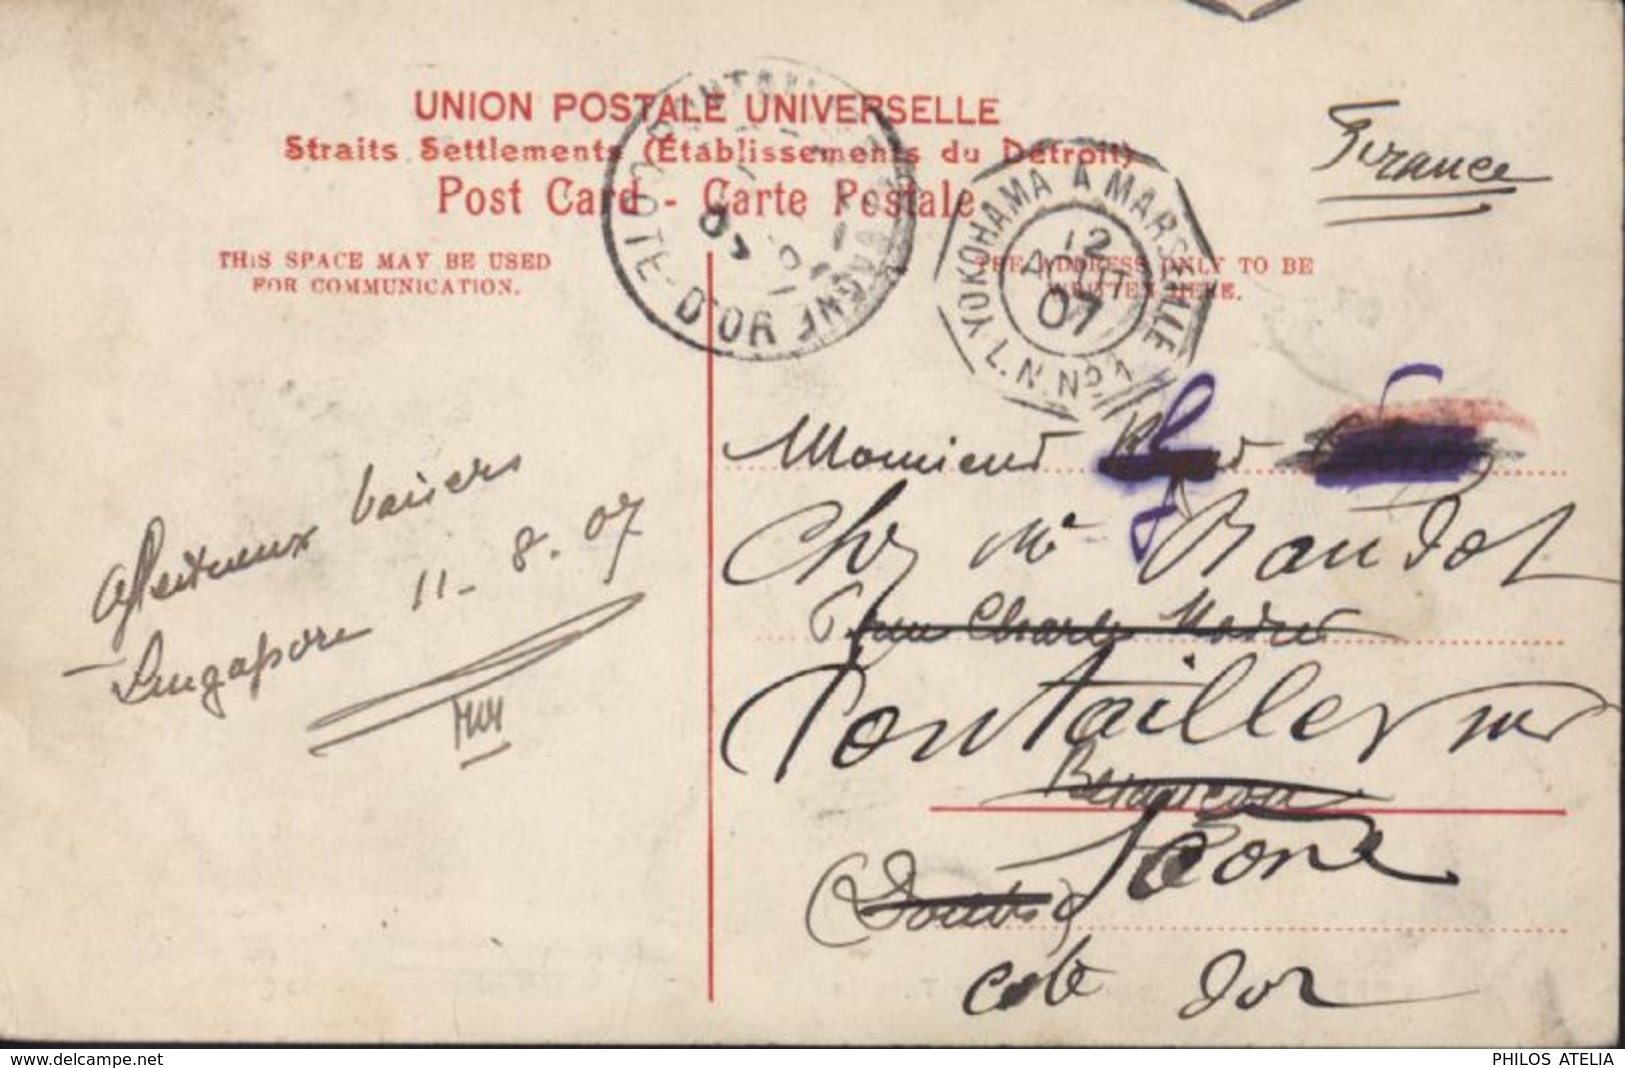 UNION POSTALE UNIVERSELLE
Straits Settlements (Établissements du Détroit)
Post Card - Carte Postale
THIS SPACE MAY BE USED
FOR COMMUNICATION.
THE ADDRESS ONLY TO BE
WRITTEN HERE.
France
CÔTE-D'OR
07
YOKOHAMA A MARSEILLE
12
AOUT
07
L.N. No. 1
Affectueux baisers
Singapore 11-8.07
Monsieur
Chez Mr Baudot
rue Charles Nodier
Pontailler sur
Besançon
Saone
(Doubs)
cote d'or
www.delcampe.net
PHILOS ATELIA